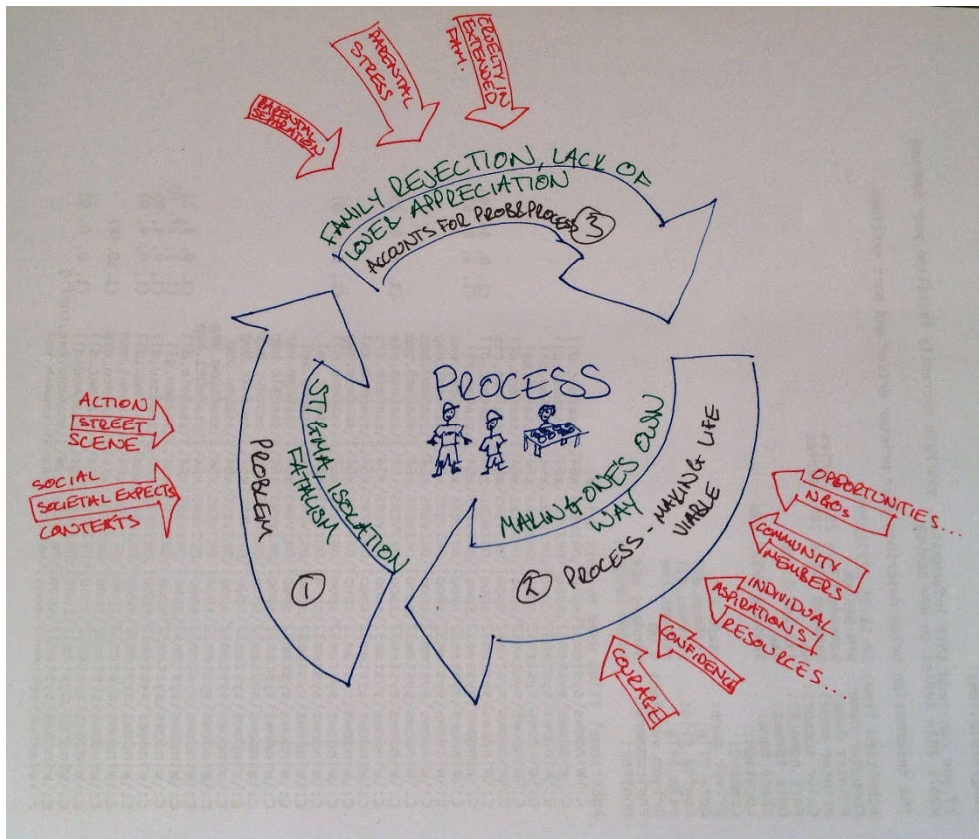 PARENTAL
SEPARATION
PARENTAL
STRESS
CRUELTY IN
EXTENDED
FAM.
FAMILY REJECTION, LACK OF
LOVE & APPRECIATION
ACCOUNTS FOR PROB & PROCESS ③
PROCESS
ACTION
STREET
SCENE
SOCIAL
SOCIETAL EXPECTS
CONTEXTS
STIGMA, ISOLATION
FATALISM
PROBLEM
①
MAKING ONE'S OWN
WAY
② PROCESS - MAKING LIFE
VIABLE
OPPORTUNITIES...
NGOs
COMMUNITY
MEMBERS
INDIVIDUAL
ASPIRATIONS
RESOURCES...
CONFIDENCE
COURAGE